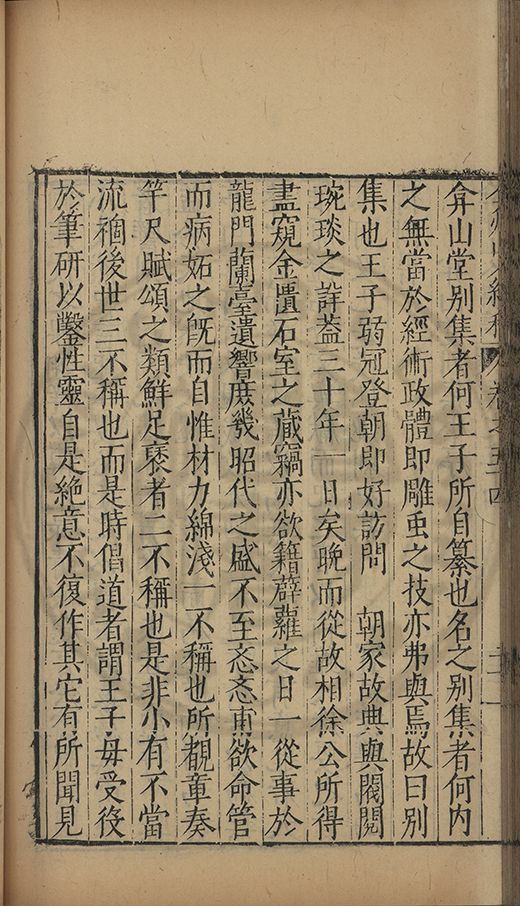 弇山堂別集者何王子所自纂也名之別集者何內
之無當於經術政體即雕虫之技亦弗與焉故曰別
集也王子弱冠登朝即好訪問　朝家故典與閥閱
琬琰之詳蓋三十年一日矣晚而從故相徐公所得
盡窺金匱石室之藏竊亦欲籍薜蘿之日一從事於
龍門蘭臺遺響庶幾昭代之盛不至忞忞甫欲命管
而病妬之旣而自惟材力綿淺一不稱也所覩章奏
竿尺賦頌之類鮮足褒者二不稱也是非小有不當
流禍後世三不稱也而是時倡道者謂王子毋受役
於筆硏以鑿性靈自是絶意不復作其它有所聞見